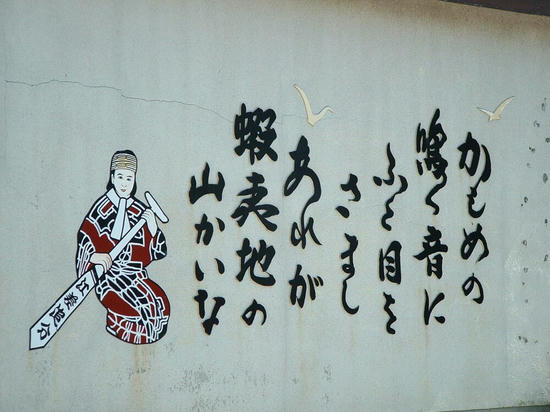 かもめの
鳴く音に
ふと目を
さまし
あれが
蝦夷地の
山かいな
江差追分